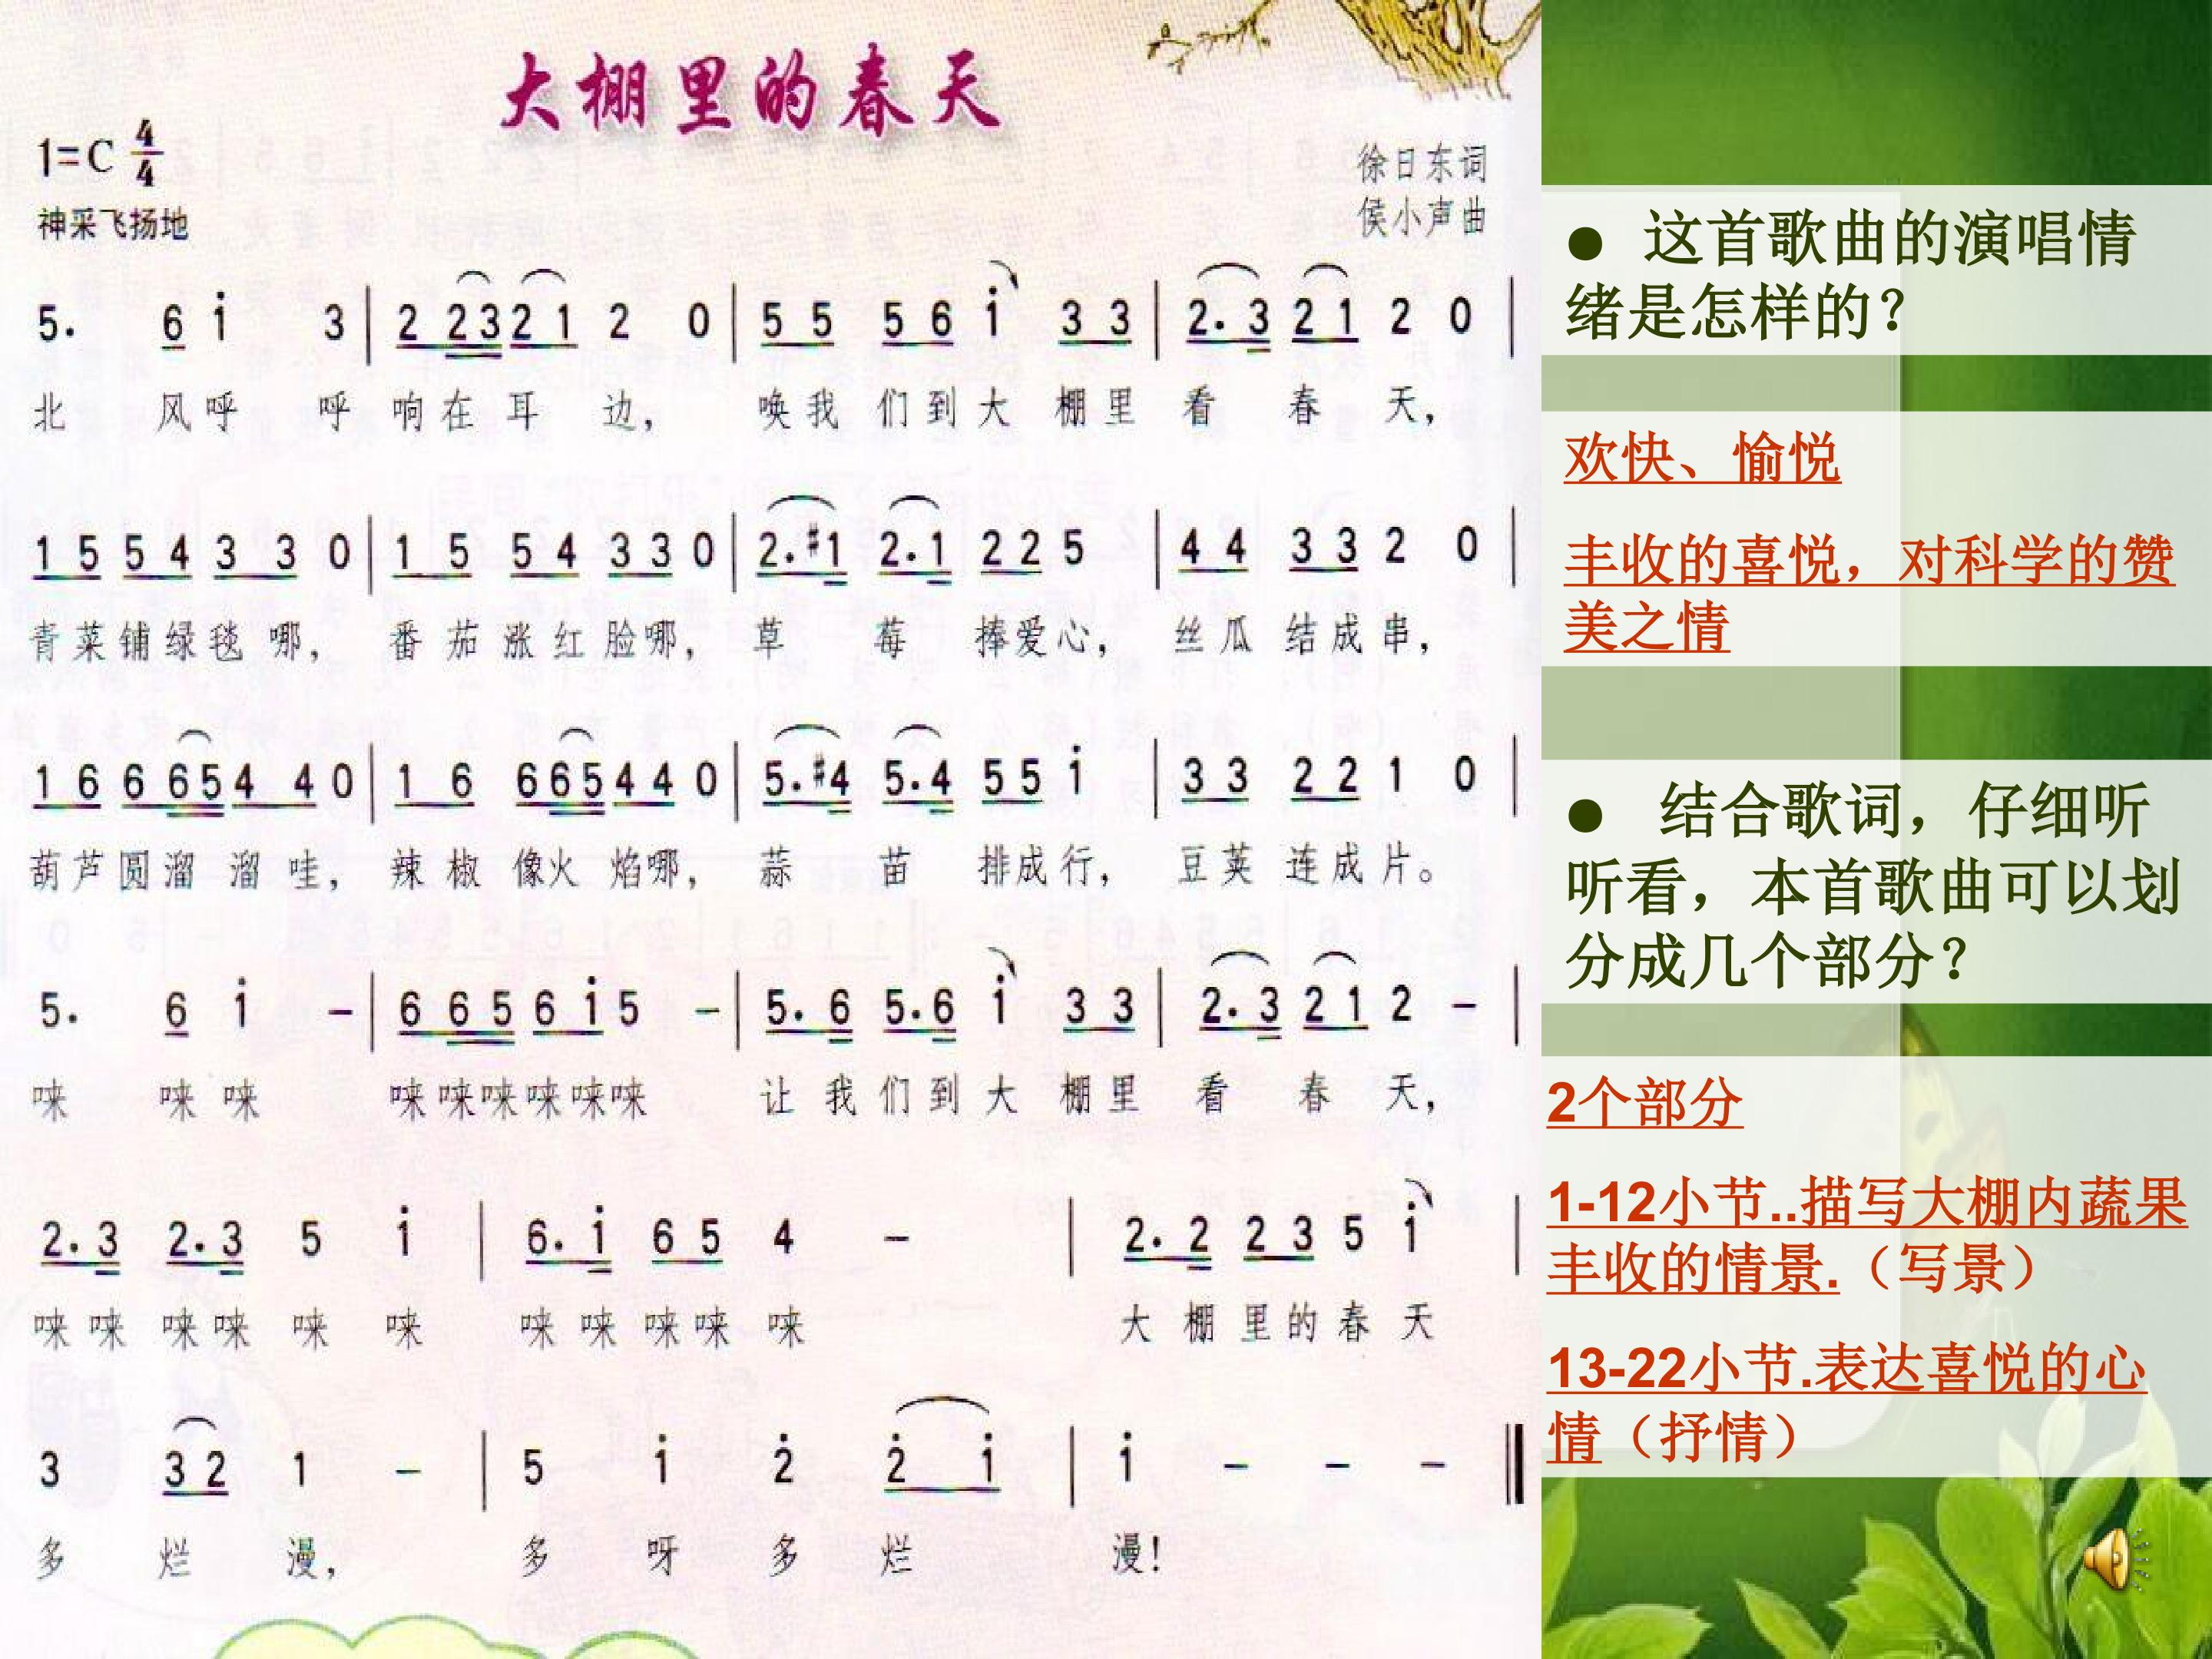 大棚里的春天
1=C 4/4
徐日东词
神采飞扬地
侯小声曲
5. 6 i 3 | 2 2 3 2 1 2 0 | 5 5 5 6 i 3 3 | 2. 3 2 1 2 0 |
北 风 呼 呼 响 在 耳 边， 唤 我 们 到 大 棚 里 看 春 天，
1 5 5 4 3 3 0 | 1 5 5 4 3 3 0 | 2. #1 2. 1 2 2 5 | 4 4 3 3 2 0 |
青 菜 铺 绿 毯 哪， 番 茄 涨 红 脸 哪， 草 莓 捧 爱 心， 丝 瓜 结 成 串，
1 6 6 6 5 4 4 0 | 1 6 6 6 5 4 4 0 | 5. #4 5. 4 5 5 i | 3 3 2 2 1 0 |
葫 芦 圆 溜 溜 哇， 辣 椒 像 火 焰 哪， 蒜 苗 排 成 行， 豆 荚 连 成 片。
5. 6 i - | 6 6 5 6 i 5 - | 5. 6 5. 6 i 3 3 | 2. 3 2 1 2 - |
唻 唻 唻 唻 唻 唻 唻 唻 唻 让 我 们 到 大 棚 里 看 春 天，
2. 3 2. 3 5 i | 6. i 6 5 4 - | 2. 2 2 3 5 i |
唻 唻 唻 唻 唻 唻 唻 唻 唻 唻 唻 大 棚 里 的 春 天
3 3 2 1 - | 5 i 2 2 i | i - - - ‖
多 烂 漫， 多 呀 多 烂 漫！
● 这首歌曲的演唱情
绪是怎样的？
欢快、愉悦
丰收的喜悦，对科学的赞
美之情
● 结合歌词，仔细听
听看，本首歌曲可以划
分成几个部分？
2个部分
1-12小节..描写大棚内蔬果
丰收的情景.（写景）
13-22小节.表达喜悦的心
情（抒情）